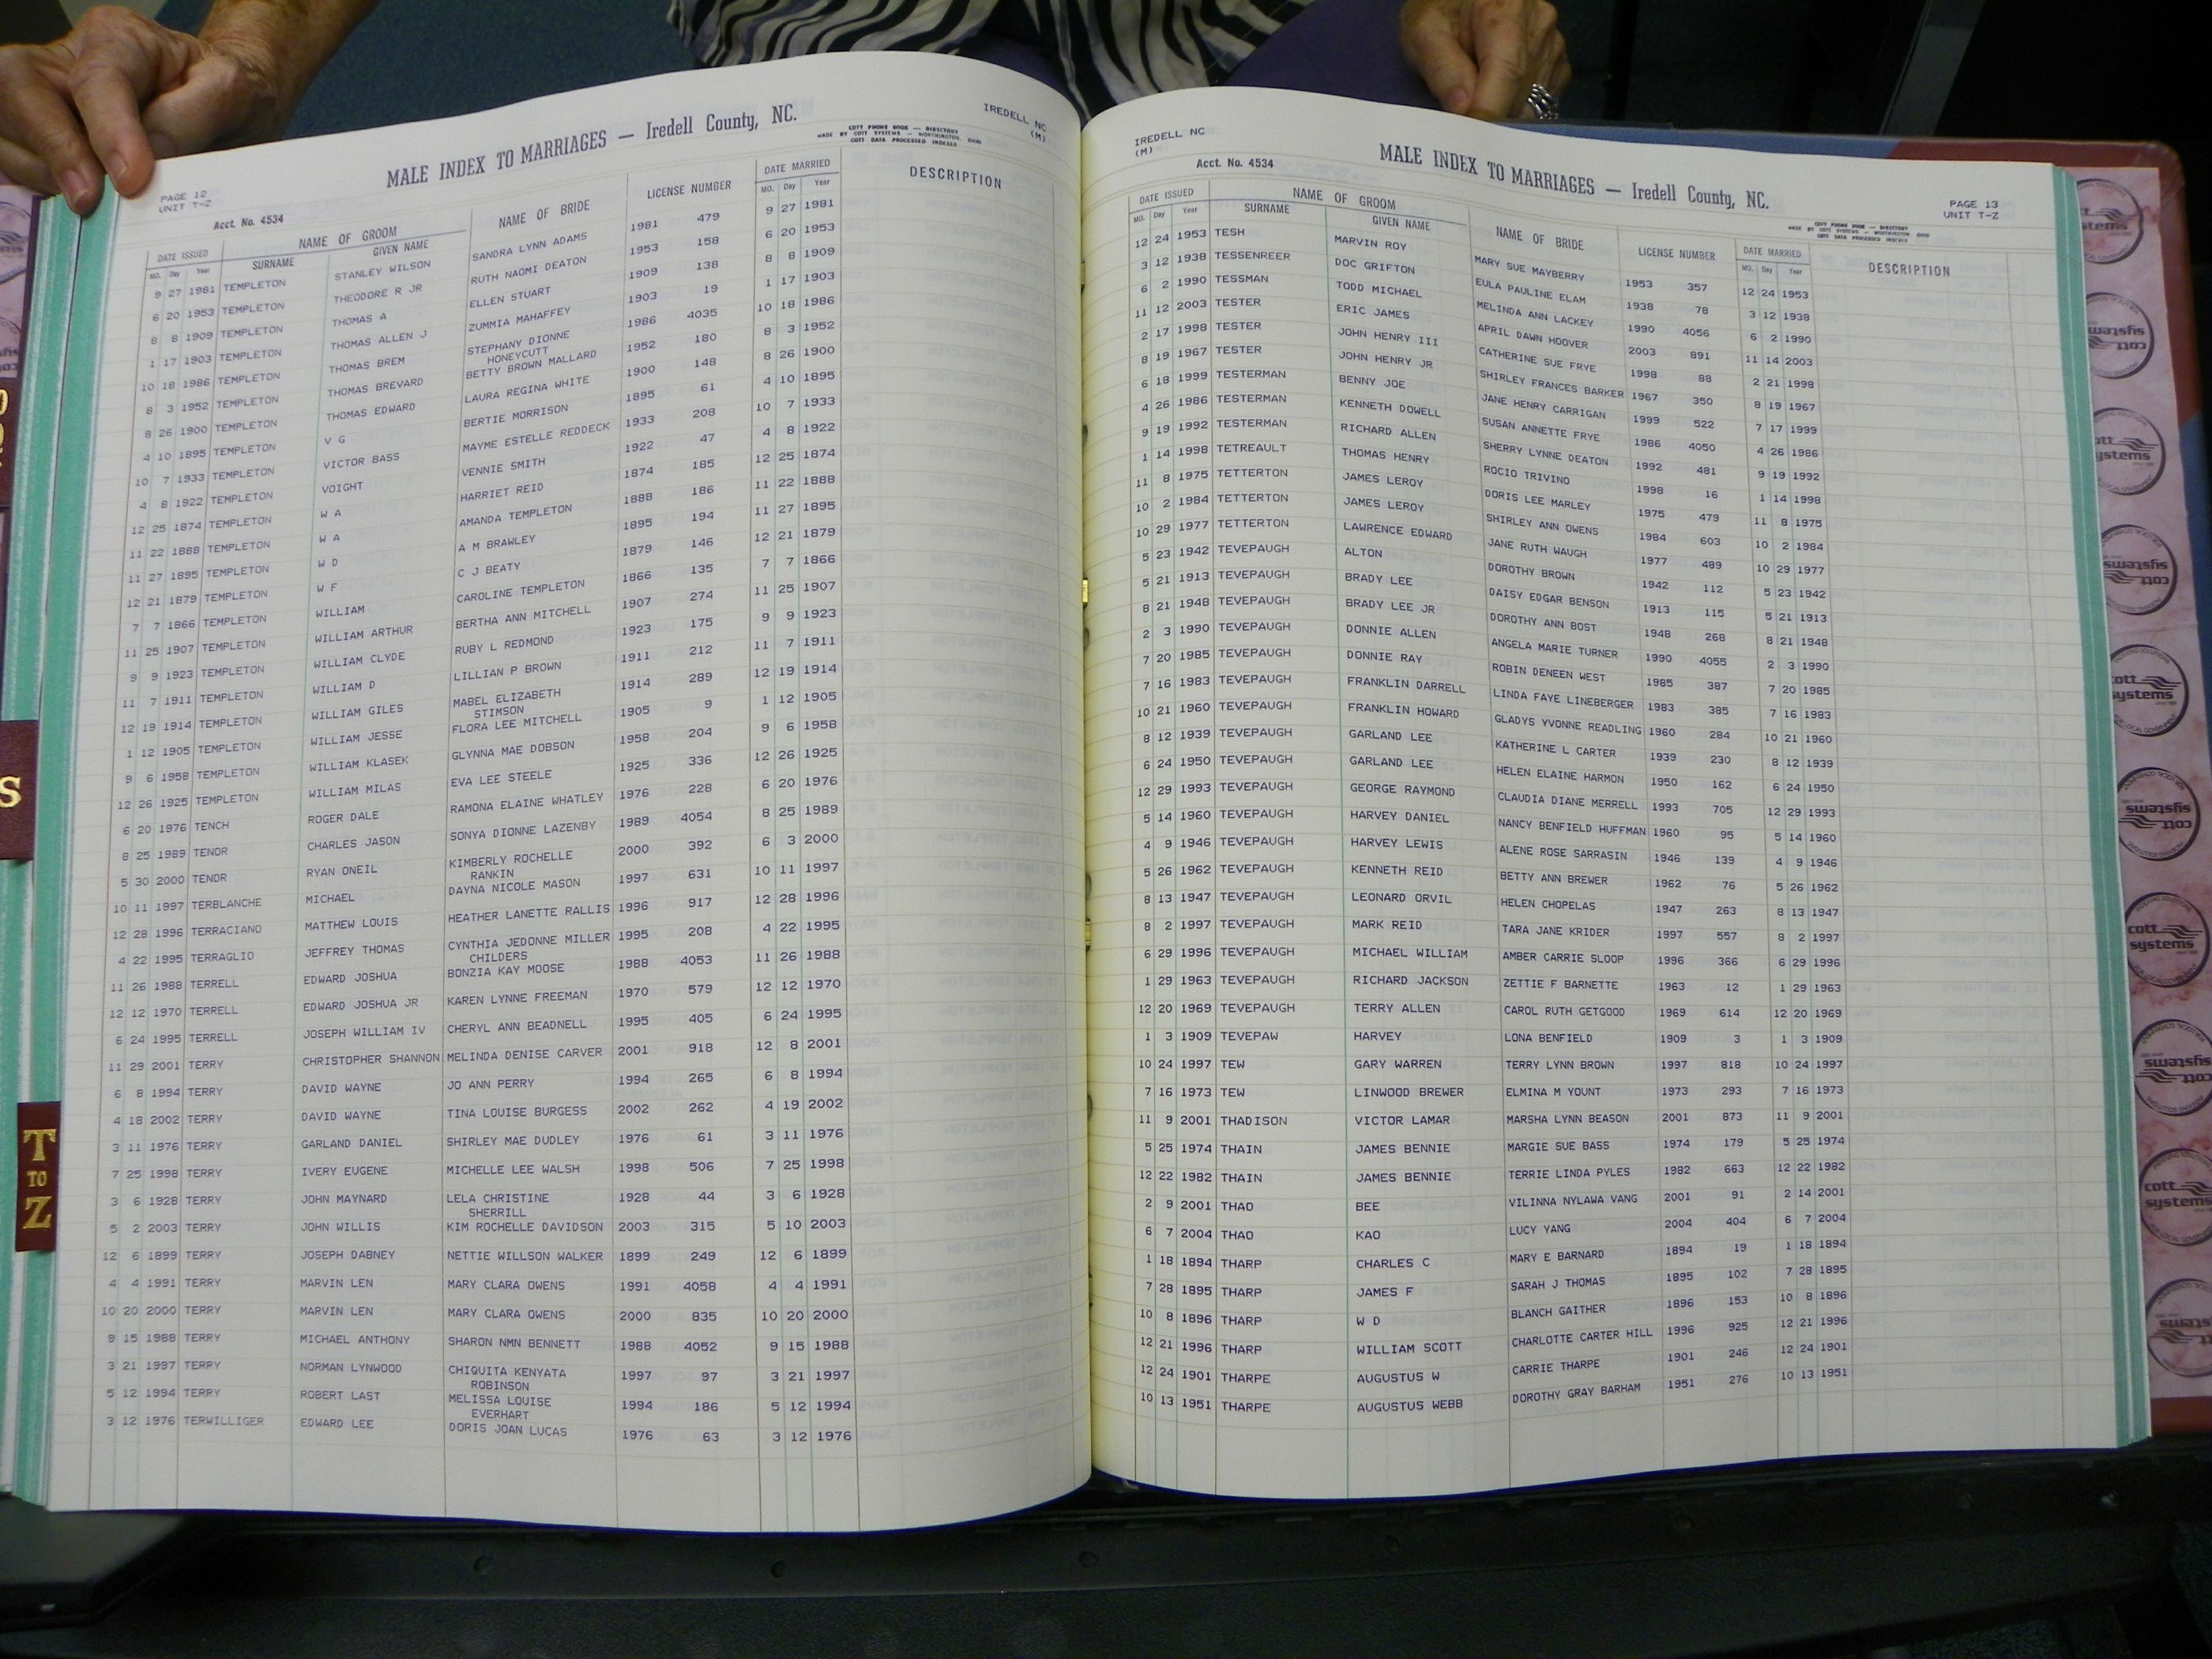 IREDELL NC
(M)
MALE INDEX TO MARRIAGES — Iredell County, NC.
COTT PHONE BOOK — DIRECTORY
MADE BY COTT SYSTEMS — WORTHINGTON, OHIO
COTT DATA PROCESSED INDEXES
PAGE 12
UNIT T-Z
Acct. No. 4534
DATE ISSUED NAME OF GROOM NAME OF BRIDE LICENSE NUMBER DATE MARRIED DESCRIPTION
MO. Day Year SURNAME GIVEN NAME MO. Day Year
9 27 1981 TEMPLETON STANLEY WILSON SANDRA LYNN ADAMS 1981 479 9 27 1981
6 20 1953 TEMPLETON THEODORE R JR RUTH NAOMI DEATON 1953 158 6 20 1953
8 8 1909 TEMPLETON THOMAS A ELLEN STUART 1909 138 8 8 1909
1 17 1903 TEMPLETON THOMAS ALLEN J ZUMMIA MAHAFFEY 1903 19 1 17 1903
10 18 1986 TEMPLETON THOMAS BREM STEPHANY DIONNE 1986 4035 10 18 1986
HONEYCUTT
8 3 1952 TEMPLETON THOMAS BREVARD BETTY BROWN MALLARD 1952 180 8 3 1952
8 26 1900 TEMPLETON THOMAS EDWARD LAURA REGINA WHITE 1900 148 8 26 1900
4 10 1895 TEMPLETON V G BERTIE MORRISON 1895 61 4 10 1895
10 7 1933 TEMPLETON VICTOR BASS MAYME ESTELLE REDDECK 1933 208 10 7 1933
4 8 1922 TEMPLETON VOIGHT VENNIE SMITH 1922 47 4 8 1922
12 25 1874 TEMPLETON W A HARRIET REID 1874 185 12 25 1874
11 22 1888 TEMPLETON W A AMANDA TEMPLETON 1888 186 11 22 1888
11 27 1895 TEMPLETON W D A M BRAWLEY 1895 194 11 27 1895
12 21 1879 TEMPLETON W F C J BEATY 1879 146 12 21 1879
7 7 1866 TEMPLETON WILLIAM CAROLINE TEMPLETON 1866 135 7 7 1866
11 25 1907 TEMPLETON WILLIAM ARTHUR BERTHA ANN MITCHELL 1907 274 11 25 1907
9 9 1923 TEMPLETON WILLIAM CLYDE RUBY L REDMOND 1923 175 9 9 1923
11 7 1911 TEMPLETON WILLIAM D LILLIAN P BROWN 1911 212 11 7 1911
12 19 1914 TEMPLETON WILLIAM GILES MABEL ELIZABETH 1914 289 12 19 1914
STIMSON
1 12 1905 TEMPLETON WILLIAM JESSE FLORA LEE MITCHELL 1905 9 1 12 1905
9 6 1958 TEMPLETON WILLIAM KLASEK GLYNNA MAE DOBSON 1958 204 9 6 1958
12 26 1925 TEMPLETON WILLIAM MILAS EVA LEE STEELE 1925 336 12 26 1925
6 20 1976 TENCH ROGER DALE RAMONA ELAINE WHATLEY 1976 228 6 20 1976
8 25 1989 TENOR CHARLES JASON SONYA DIONNE LAZENBY 1989 4054 8 25 1989
5 30 2000 TENOR RYAN ONEIL KIMBERLY ROCHELLE 2000 392 6 3 2000
RANKIN
10 11 1997 TERBLANCHE MICHAEL DAYNA NICOLE MASON 1997 631 10 11 1997
12 28 1996 TERRACIANO MATTHEW LOUIS HEATHER LANETTE RALLIS 1996 917 12 28 1996
4 22 1995 TERRAGLIO JEFFREY THOMAS CYNTHIA JEDONNE MILLER 1995 208 4 22 1995
CHILDERS
11 26 1988 TERRELL EDWARD JOSHUA BONZIA KAY MOOSE 1988 4053 11 26 1988
12 12 1970 TERRELL EDWARD JOSHUA JR KAREN LYNNE FREEMAN 1970 579 12 12 1970
6 24 1995 TERRELL JOSEPH WILLIAM IV CHERYL ANN BEADNELL 1995 405 6 24 1995
11 29 2001 TERRY CHRISTOPHER SHANNON MELINDA DENISE CARVER 2001 918 12 8 2001
6 8 1994 TERRY DAVID WAYNE JO ANN PERRY 1994 265 6 8 1994
4 18 2002 TERRY DAVID WAYNE TINA LOUISE BURGESS 2002 262 4 19 2002
3 11 1976 TERRY GARLAND DANIEL SHIRLEY MAE DUDLEY 1976 61 3 11 1976
7 25 1998 TERRY IVERY EUGENE MICHELLE LEE WALSH 1998 506 7 25 1998
3 6 1928 TERRY JOHN MAYNARD LELA CHRISTINE 1928 44 3 6 1928
SHERRILL
5 2 2003 TERRY JOHN WILLIS KIM ROCHELLE DAVIDSON 2003 315 5 10 2003
12 6 1899 TERRY JOSEPH DABNEY NETTIE WILLSON WALKER 1899 249 12 6 1899
4 4 1991 TERRY MARVIN LEN MARY CLARA OWENS 1991 4058 4 4 1991
10 20 2000 TERRY MARVIN LEN MARY CLARA OWENS 2000 835 10 20 2000
9 15 1988 TERRY MICHAEL ANTHONY SHARON NMN BENNETT 1988 4052 9 15 1988
3 21 1997 TERRY NORMAN LYNWOOD CHIQUITA KENYATA 1997 97 3 21 1997
ROBINSON
5 12 1994 TERRY ROBERT LAST MELISSA LOUISE 1994 186 5 12 1994
EVERHART
3 12 1976 TERWILLIGER EDWARD LEE DORIS JOAN LUCAS 1976 63 3 12 1976
S
T
TO
Z
IREDELL NC
(M)
Acct. No. 4534
MALE INDEX TO MARRIAGES — Iredell County, NC.
COTT PHONE BOOK — DIRECTORY
MADE BY COTT SYSTEMS — WORTHINGTON, OHIO
COTT DATA PROCESSED INDEXES
PAGE 13
UNIT T-Z
DATE ISSUED NAME OF GROOM NAME OF BRIDE LICENSE NUMBER DATE MARRIED DESCRIPTION
MO. Day Year SURNAME GIVEN NAME MO. Day Year
12 24 1953 TESH MARVIN ROY MARY SUE MAYBERRY 1953 357 12 24 1953
3 12 1938 TESSENREER DOC GRIFTON EULA PAULINE ELAM 1938 78 3 12 1938
6 2 1990 TESSMAN TODD MICHAEL MELINDA ANN LACKEY 1990 4056 6 2 1990
11 12 2003 TESTER ERIC JAMES APRIL DAWN HOOVER 2003 891 11 14 2003
2 17 1998 TESTER JOHN HENRY III CATHERINE SUE FRYE 1998 88 2 21 1998
8 19 1967 TESTER JOHN HENRY JR SHIRLEY FRANCES BARKER 1967 350 8 19 1967
6 18 1999 TESTERMAN BENNY JOE JANE HENRY CARRIGAN 1999 522 7 17 1999
4 26 1986 TESTERMAN KENNETH DOWELL SUSAN ANNETTE FRYE 1986 4050 4 26 1986
9 19 1992 TESTERMAN RICHARD ALLEN SHERRY LYNNE DEATON 1992 481 9 19 1992
1 14 1998 TETREAULT THOMAS HENRY ROCIO TRIVINO 1998 16 1 14 1998
11 8 1975 TETTERTON JAMES LEROY DORIS LEE MARLEY 1975 479 11 8 1975
10 2 1984 TETTERTON JAMES LEROY SHIRLEY ANN OWENS 1984 603 10 2 1984
10 29 1977 TETTERTON LAWRENCE EDWARD JANE RUTH WAUGH 1977 489 10 29 1977
5 23 1942 TEVEPAUGH ALTON DOROTHY BROWN 1942 112 5 23 1942
5 21 1913 TEVEPAUGH BRADY LEE DAISY EDGAR BENSON 1913 115 5 21 1913
8 21 1948 TEVEPAUGH BRADY LEE JR DOROTHY ANN BOST 1948 268 8 21 1948
2 3 1990 TEVEPAUGH DONNIE ALLEN ANGELA MARIE TURNER 1990 4055 2 3 1990
7 20 1985 TEVEPAUGH DONNIE RAY ROBIN DENEEN WEST 1985 387 7 20 1985
7 16 1983 TEVEPAUGH FRANKLIN DARRELL LINDA FAYE LINEBERGER 1983 385 7 16 1983
10 21 1960 TEVEPAUGH FRANKLIN HOWARD GLADYS YVONNE READLING 1960 284 10 21 1960
8 12 1939 TEVEPAUGH GARLAND LEE KATHERINE L CARTER 1939 230 8 12 1939
6 24 1950 TEVEPAUGH GARLAND LEE HELEN ELAINE HARMON 1950 162 6 24 1950
12 29 1993 TEVEPAUGH GEORGE RAYMOND CLAUDIA DIANE MERRELL 1993 705 12 29 1993
5 14 1960 TEVEPAUGH HARVEY DANIEL NANCY BENFIELD HUFFMAN 1960 95 5 14 1960
4 9 1946 TEVEPAUGH HARVEY LEWIS ALENE ROSE SARRASIN 1946 139 4 9 1946
5 26 1962 TEVEPAUGH KENNETH REID BETTY ANN BREWER 1962 76 5 26 1962
8 13 1947 TEVEPAUGH LEONARD ORVIL HELEN CHOPELAS 1947 263 8 13 1947
8 2 1997 TEVEPAUGH MARK REID TARA JANE KRIDER 1997 557 8 2 1997
6 29 1996 TEVEPAUGH MICHAEL WILLIAM AMBER CARRIE SLOOP 1996 366 6 29 1996
1 29 1963 TEVEPAUGH RICHARD JACKSON ZETTIE F BARNETTE 1963 12 1 29 1963
12 20 1969 TEVEPAUGH TERRY ALLEN CAROL RUTH GETGOOD 1969 614 12 20 1969
1 3 1909 TEVEPAW HARVEY LONA BENFIELD 1909 3 1 3 1909
10 24 1997 TEW GARY WARREN TERRY LYNN BROWN 1997 818 10 24 1997
7 16 1973 TEW LINWOOD BREWER ELMINA M YOUNT 1973 293 7 16 1973
11 9 2001 THADISON VICTOR LAMAR MARSHA LYNN BEASON 2001 873 11 9 2001
5 25 1974 THAIN JAMES BENNIE MARGIE SUE BASS 1974 179 5 25 1974
12 22 1982 THAIN JAMES BENNIE TERRIE LINDA PYLES 1982 663 12 22 1982
2 9 2001 THAO BEE VILINNA NYLAWA VANG 2001 91 2 14 2001
6 7 2004 THAO KAO LUCY YANG 2004 404 6 7 2004
1 18 1894 THARP CHARLES C MARY E BARNARD 1894 19 1 18 1894
7 28 1895 THARP JAMES F SARAH J THOMAS 1895 102 7 28 1895
10 8 1896 THARP W D BLANCH GAITHER 1896 153 10 8 1896
12 21 1996 THARP WILLIAM SCOTT CHARLOTTE CARTER HILL 1996 925 12 21 1996
12 24 1901 THARPE AUGUSTUS W CARRIE THARPE 1901 246 12 24 1901
10 13 1951 THARPE AUGUSTUS WEBB DOROTHY GRAY BARHAM 1951 276 10 13 1951
cott
systems
cott
systems
cott
systems